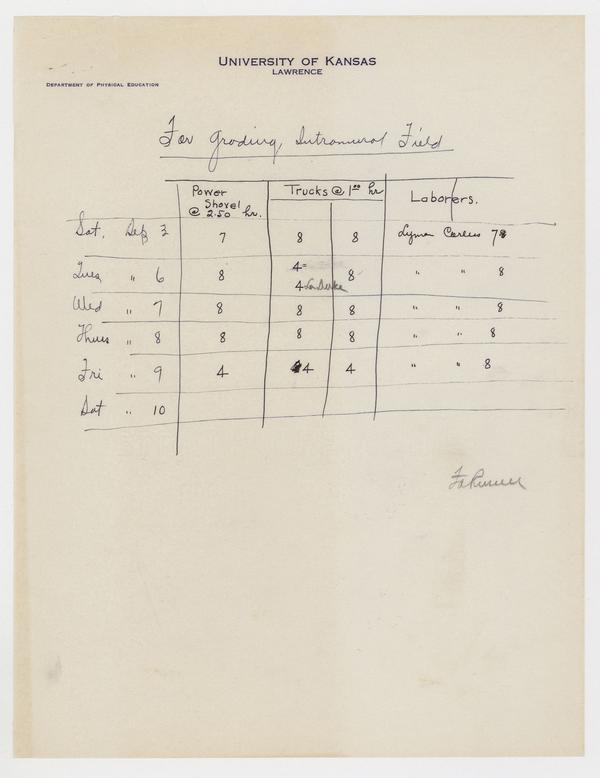 University of Kansas
Lawrence
Department of Physical Education
For Grading Intramural Field
Power Shovel @ 2.50 hr. Trucks @ 1.00 hr Laborers.
Sat. Sep 3 7 8 8 Lyman 7
Tues " 6 8 4 4 8 " " 8
Wed " 7 8 8 8 " " 8
Thurs " 8 8 8 8 " " 8
Fri " 9 4 4 4 " " 8
Sat " 10